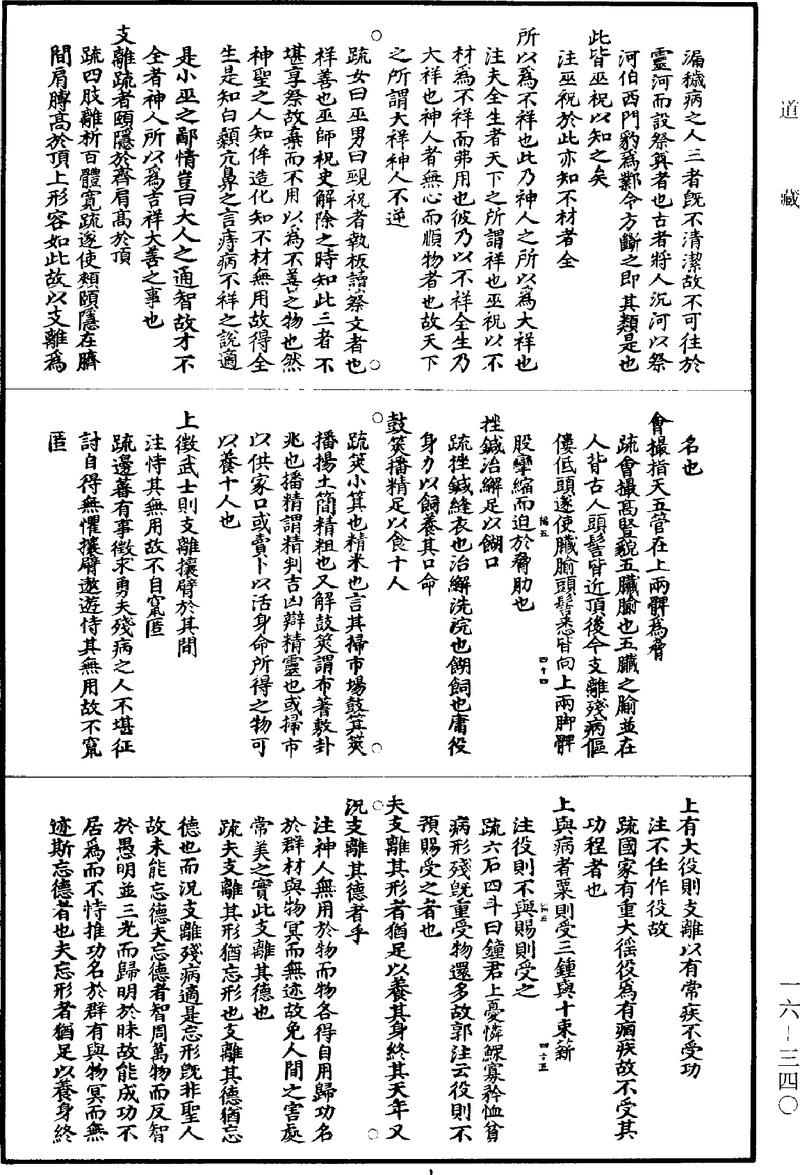 道藏
漏穢病之人三者既不清潔故不可往於
靈河而設祭奠者也古者將人沉河以祭
河伯西門豹為鄴令方斷之即其類是也
此皆巫祝以知之矣
注巫祝於此亦知不材者全
所以為不祥也此乃神人之所以為大祥也
注夫全生者天下之所謂祥也巫祝以不
材為不祥而弗用也彼乃以不祥全生乃
大祥也神人者無心而順物者也故天下
之所謂大祥神人不逆
疏女曰巫男曰覡祝者執板讀祭文者也
祥善也巫師祝史解除之時知此三者不
堪享祭故棄而不用以為不善之物也然
神聖之人知侔造化知不材無用故得全
生是知白顙亢鼻之言痔病不祥之說適
是小巫之鄙情豈曰大人之通智故才不
全者神人所以為吉祥大善之事也
支離疏者頤隱於齊肩高於頂
疏四肢離析百體寬疏遂使頰頤隱在臍
間肩膊高於頂上形容如此故以支離為
名也
會撮指天五管在上兩髀為脅
疏會撮高豎貌五臟腧也五臟之腧並在
人背古人頭髻皆近頂後今支離殘病傴
僂低頭遂使臟腧頭髻悉皆向上兩脚髀
股攣縮而迫於脅肋也
挫鍼治繲足以餬口
疏挫鍼縫衣也治繲洗浣也餬飼也庸役
身力以飼養其口命
鼓筴播精足以食十人
疏筴小箕也精米也言其掃市場鼓箕筴
播揚土簡精粗也又解鼓筴謂布蓍數卦
兆也播精謂精判吉凶辯精靈也或掃市
以供家口或賣卜以活身命所得之物可
以養十人也
上徵武士則支離攘臂於其間
注恃其無用故不自竄匿
疏邊蕃有事徵求勇夫殘病之人不堪征
討自得無懼攘臂遨遊恃其無用故不竄
匿
上有大役則支離以有常疾不受功
注不任作役故
疏國家有重大徭役為有痼疾故不受其
功程者也
上與病者粟則受三鍾與十束薪
注役則不與賜則受之
疏六石四斗曰鍾君上憂憐鰥寡矜恤貧
病形殘既重受物還多故郭注云役則不
預賜受之者也
夫支離其形者猶足以養其身終其天年又
況支離其德者乎
注神人無用於物而物各得自用歸功名
於群材與物冥而無迹故免人間之害處
常美之實此支離其德也
疏夫支離其形猶忘形也支離其德猶忘
德也而況支離殘病適是忘形既非聖人
故未能忘德夫忘德者智周萬物而反智
於愚明並三光而歸明於昧故能成功不
居為而不恃推功名於群有與物冥而無
迹斯忘德者也夫忘形者猶足以養身終
一六－三四〇